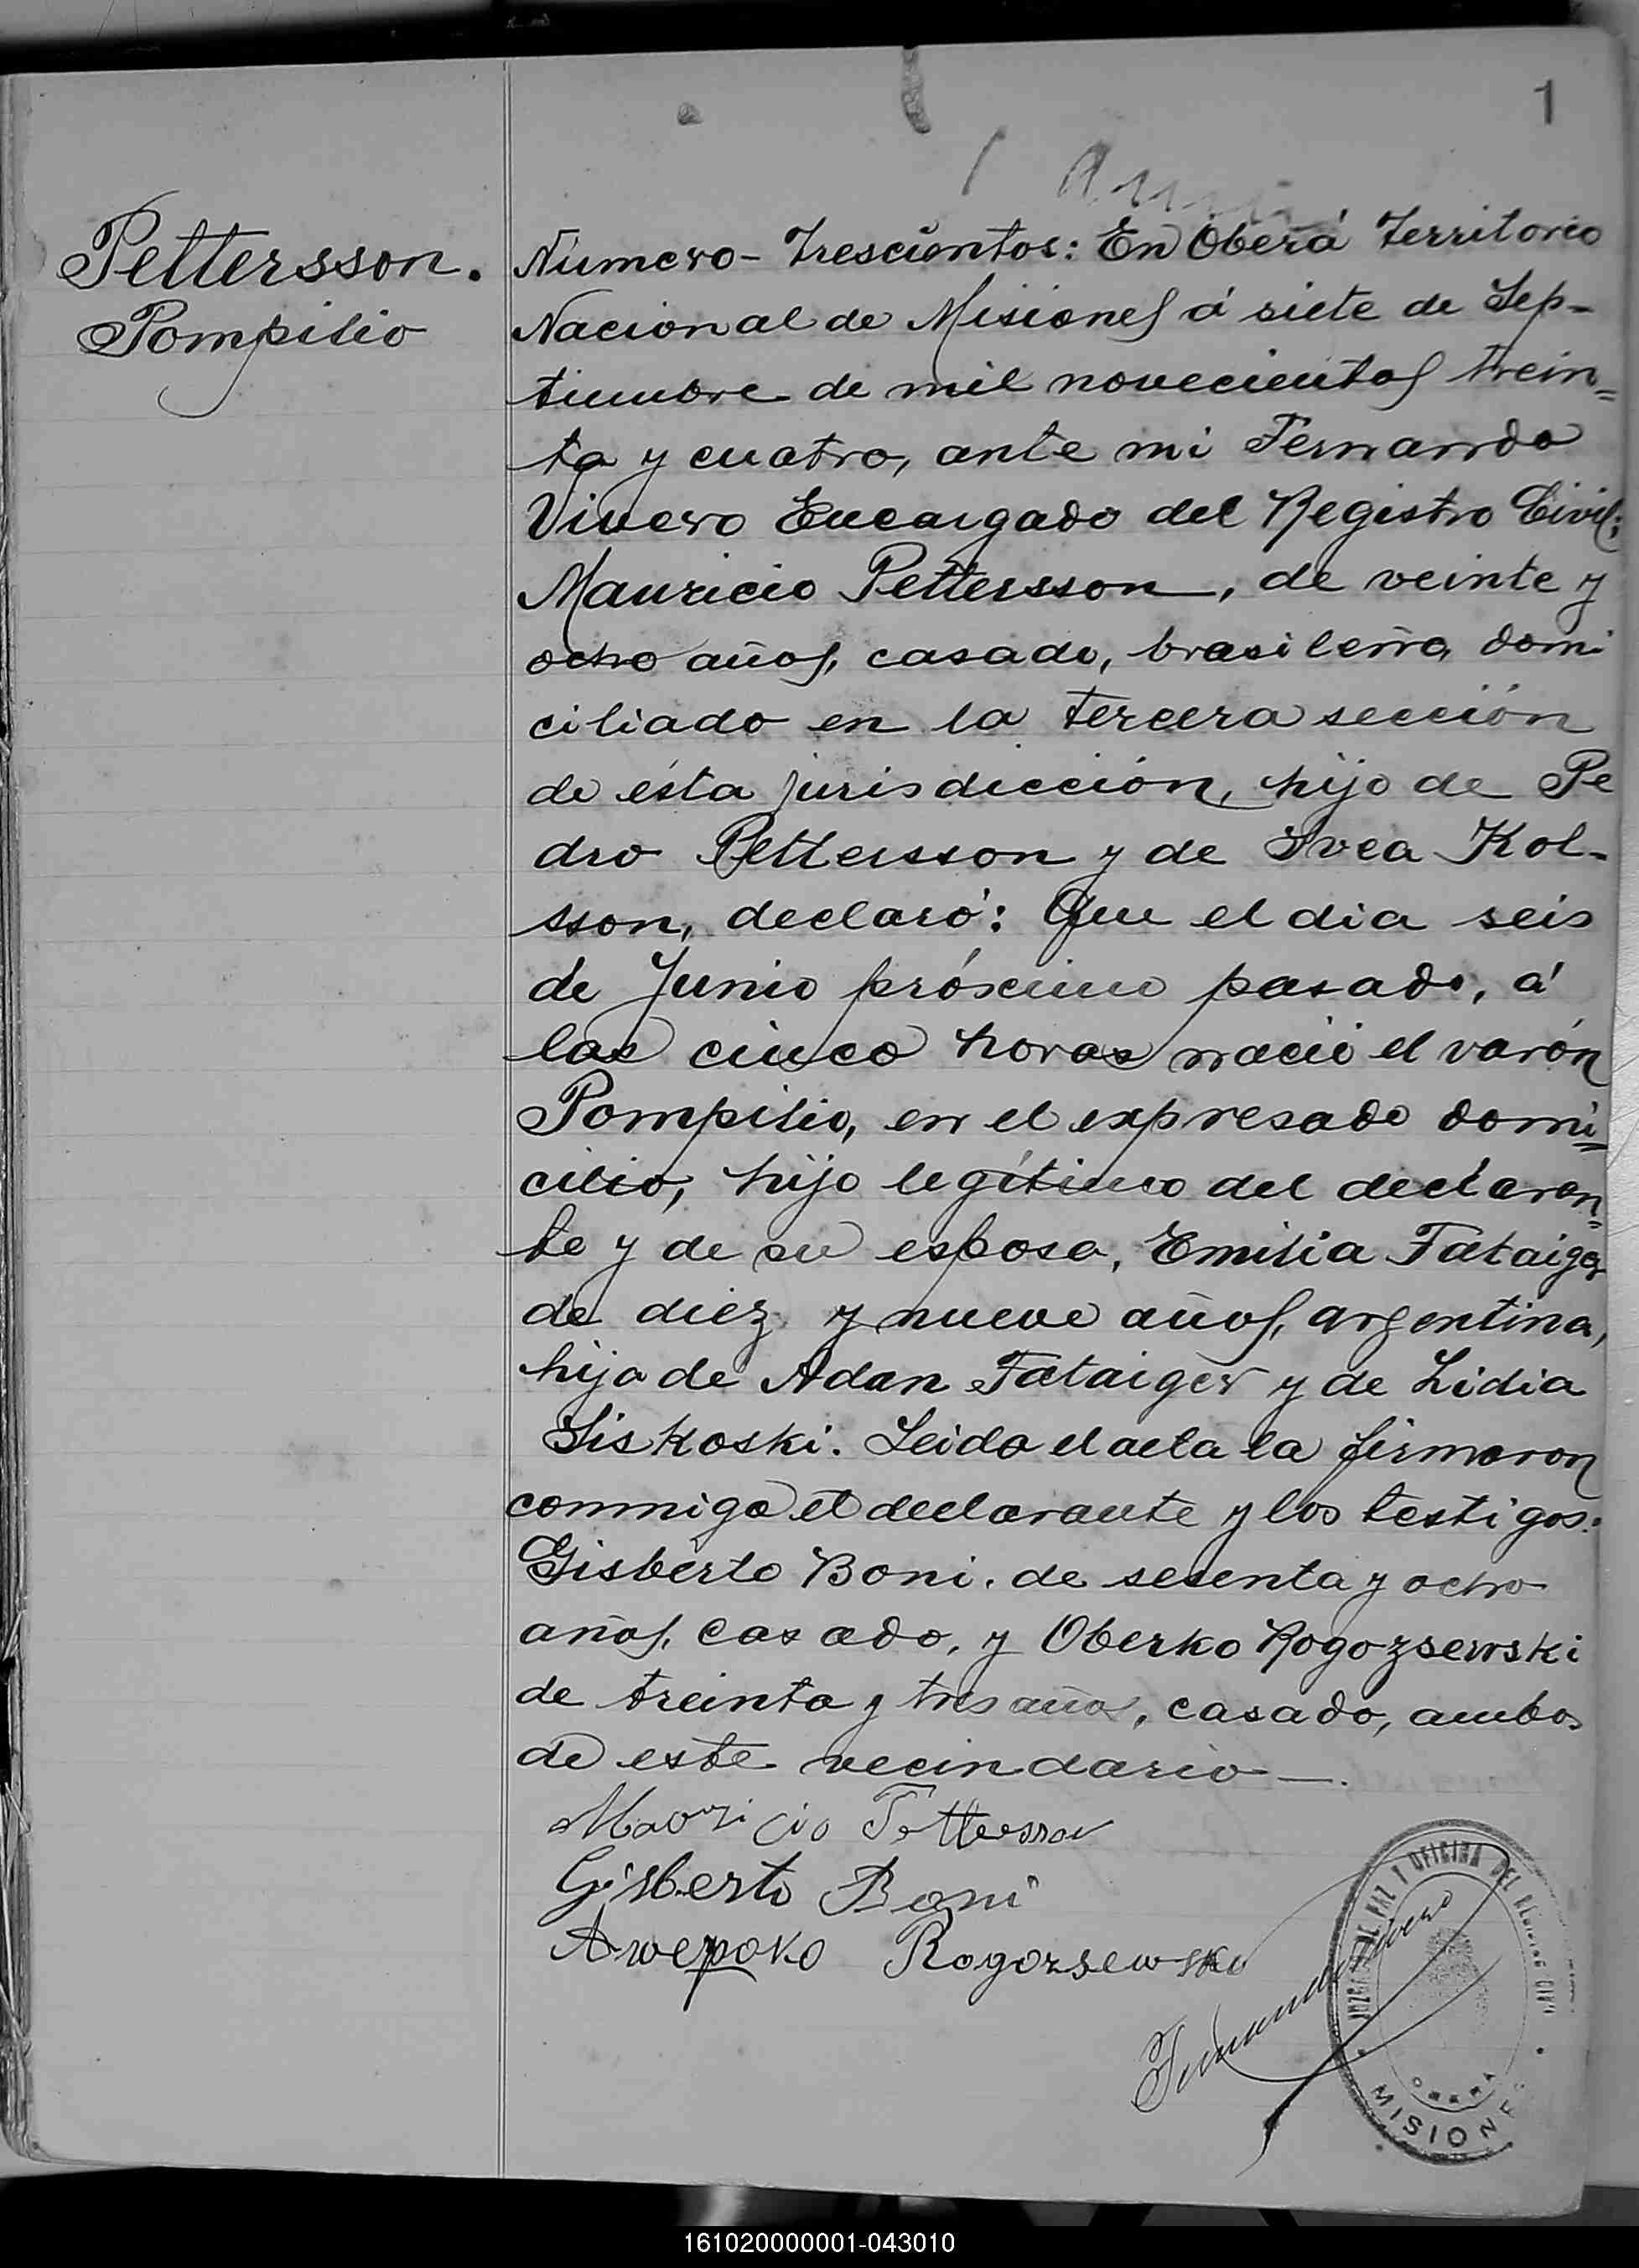 1
Pettersson.
Pompilio
Número - Trescientos: En Oberá Territorio
Nacional de Misiones á siete de Sep-
tiembre de mil novecientos trein=
ta y cuatro, ante mi Fernando
Vivero Encargado del Registro Civil:
Mauricio Pettersson, de veinte y
ocho años, casado, brasileño, domi
ciliado en la tercera sección
de ésta jurisdicción, hijo de Pe
dro Pettersson y de Svea Kol-
sson, declaró: Que el dia seis
de Junio próximo pasado, á
las cinco horas nació el varón
Pompilio, en el expresado domi=
cilio, hijo legítimo del declaran=
te y de su esposa, Emilia Fataiger
de diez y nueve años, argentina,
hija de Adan Fataiger y de Lidia
Siskoski. Leida el acta la firmaron
conmigo el declarante y los testigos:
Gisberto Boni, de sesenta y ocho
años, casado, y Oberko Rogozsewski
de treinta y tres años, casado, ambos
de este vecindario —.
Mauricio Pettersson
Gisberto Boni
Rogozsewski
Fernando Vivero
JUZGADO DE PAZ Y OFICINA DEL REGISTRO CIVIL
OBERA
MISIONES
161020000001-043010